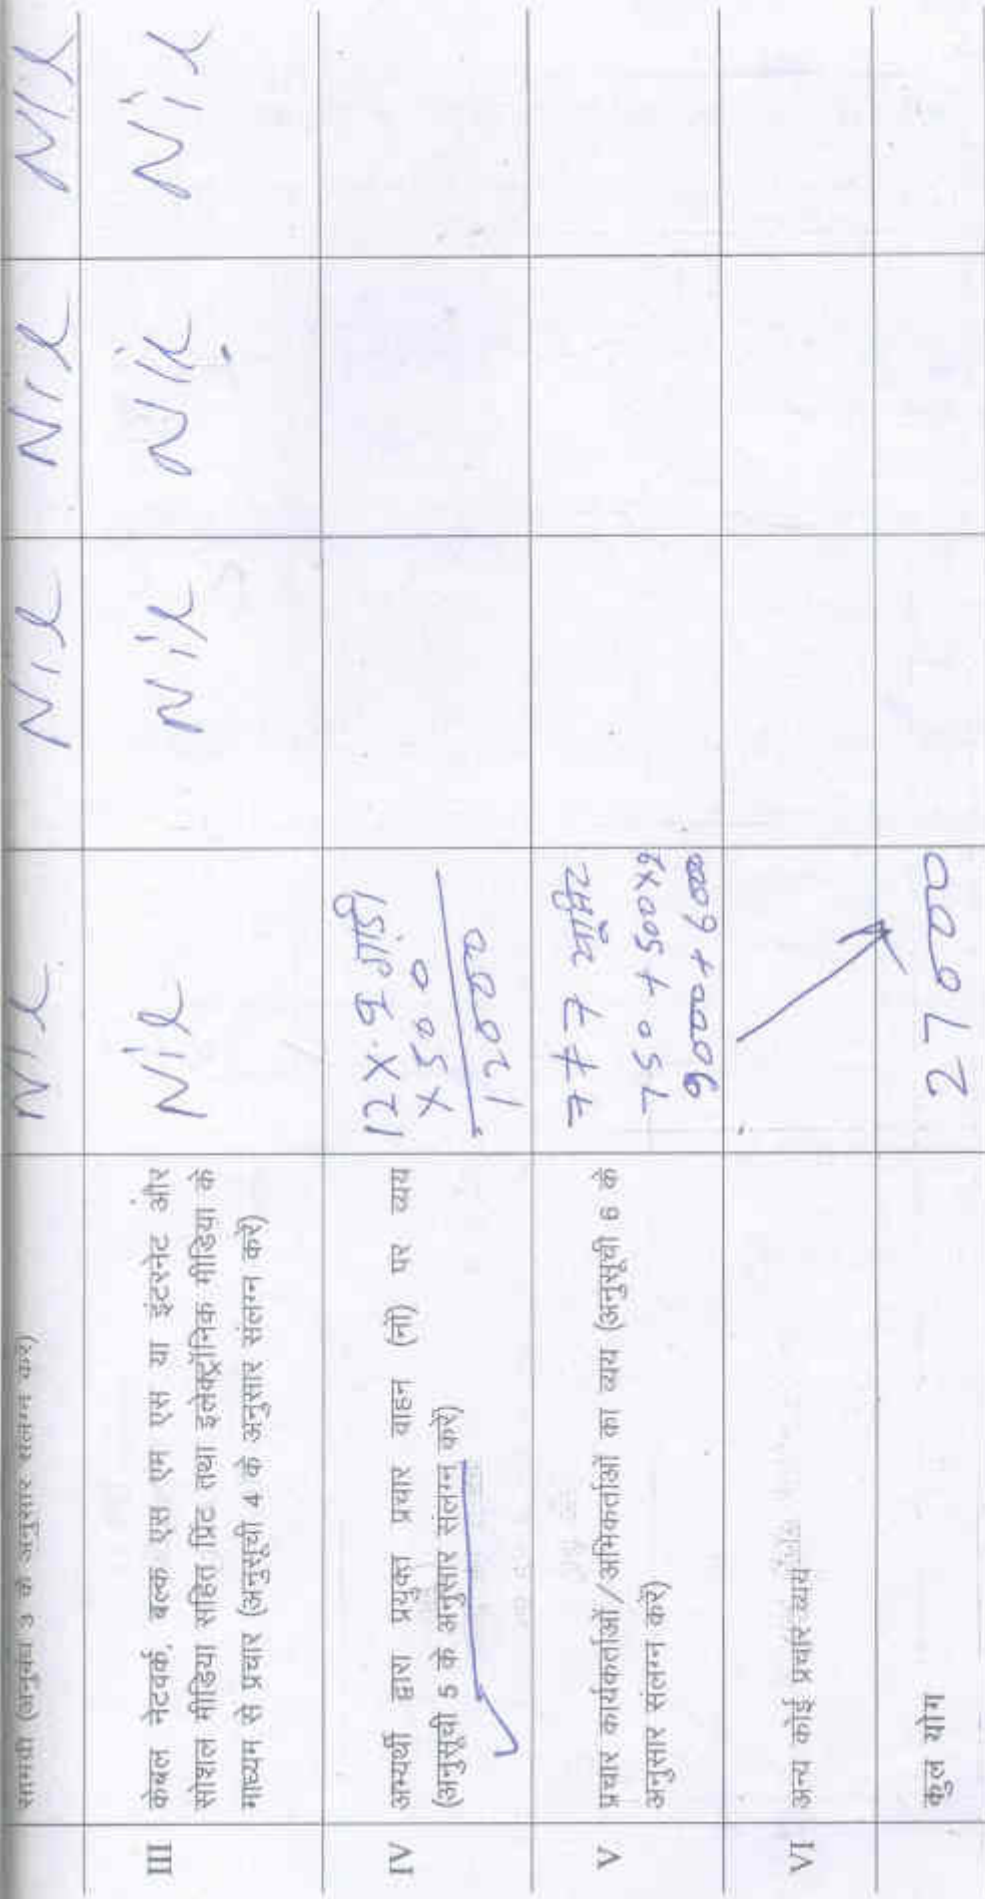 सामग्री (अनुसूची 3 के अनुसार संलग्न करें) Nil Nil Nil Nil
III केबल नेटवर्क, बल्क एस एम एस या इंटरनेट और
सोशल मीडिया सहित प्रिंट तथा इलेक्ट्रॉनिक मीडिया के
माध्यम से प्रचार (अनुसूची 4 के अनुसार संलग्न करें)
Nil Nil Nil Nil
IV अभ्यर्थी द्वारा प्रयुक्त प्रचार वाहन (नों) पर व्यय
(अनुसूची 5 के अनुसार संलग्न करें)
12 X
X 500
12000
V प्रचार कार्यकर्ताओं/अभिकर्ताओं का व्यय (अनुसूची 6 के
अनुसार संलग्न करें)
750 + 500x6
9000 + 6000
VI अन्य कोई प्रचार व्यय
कुल योग 27000